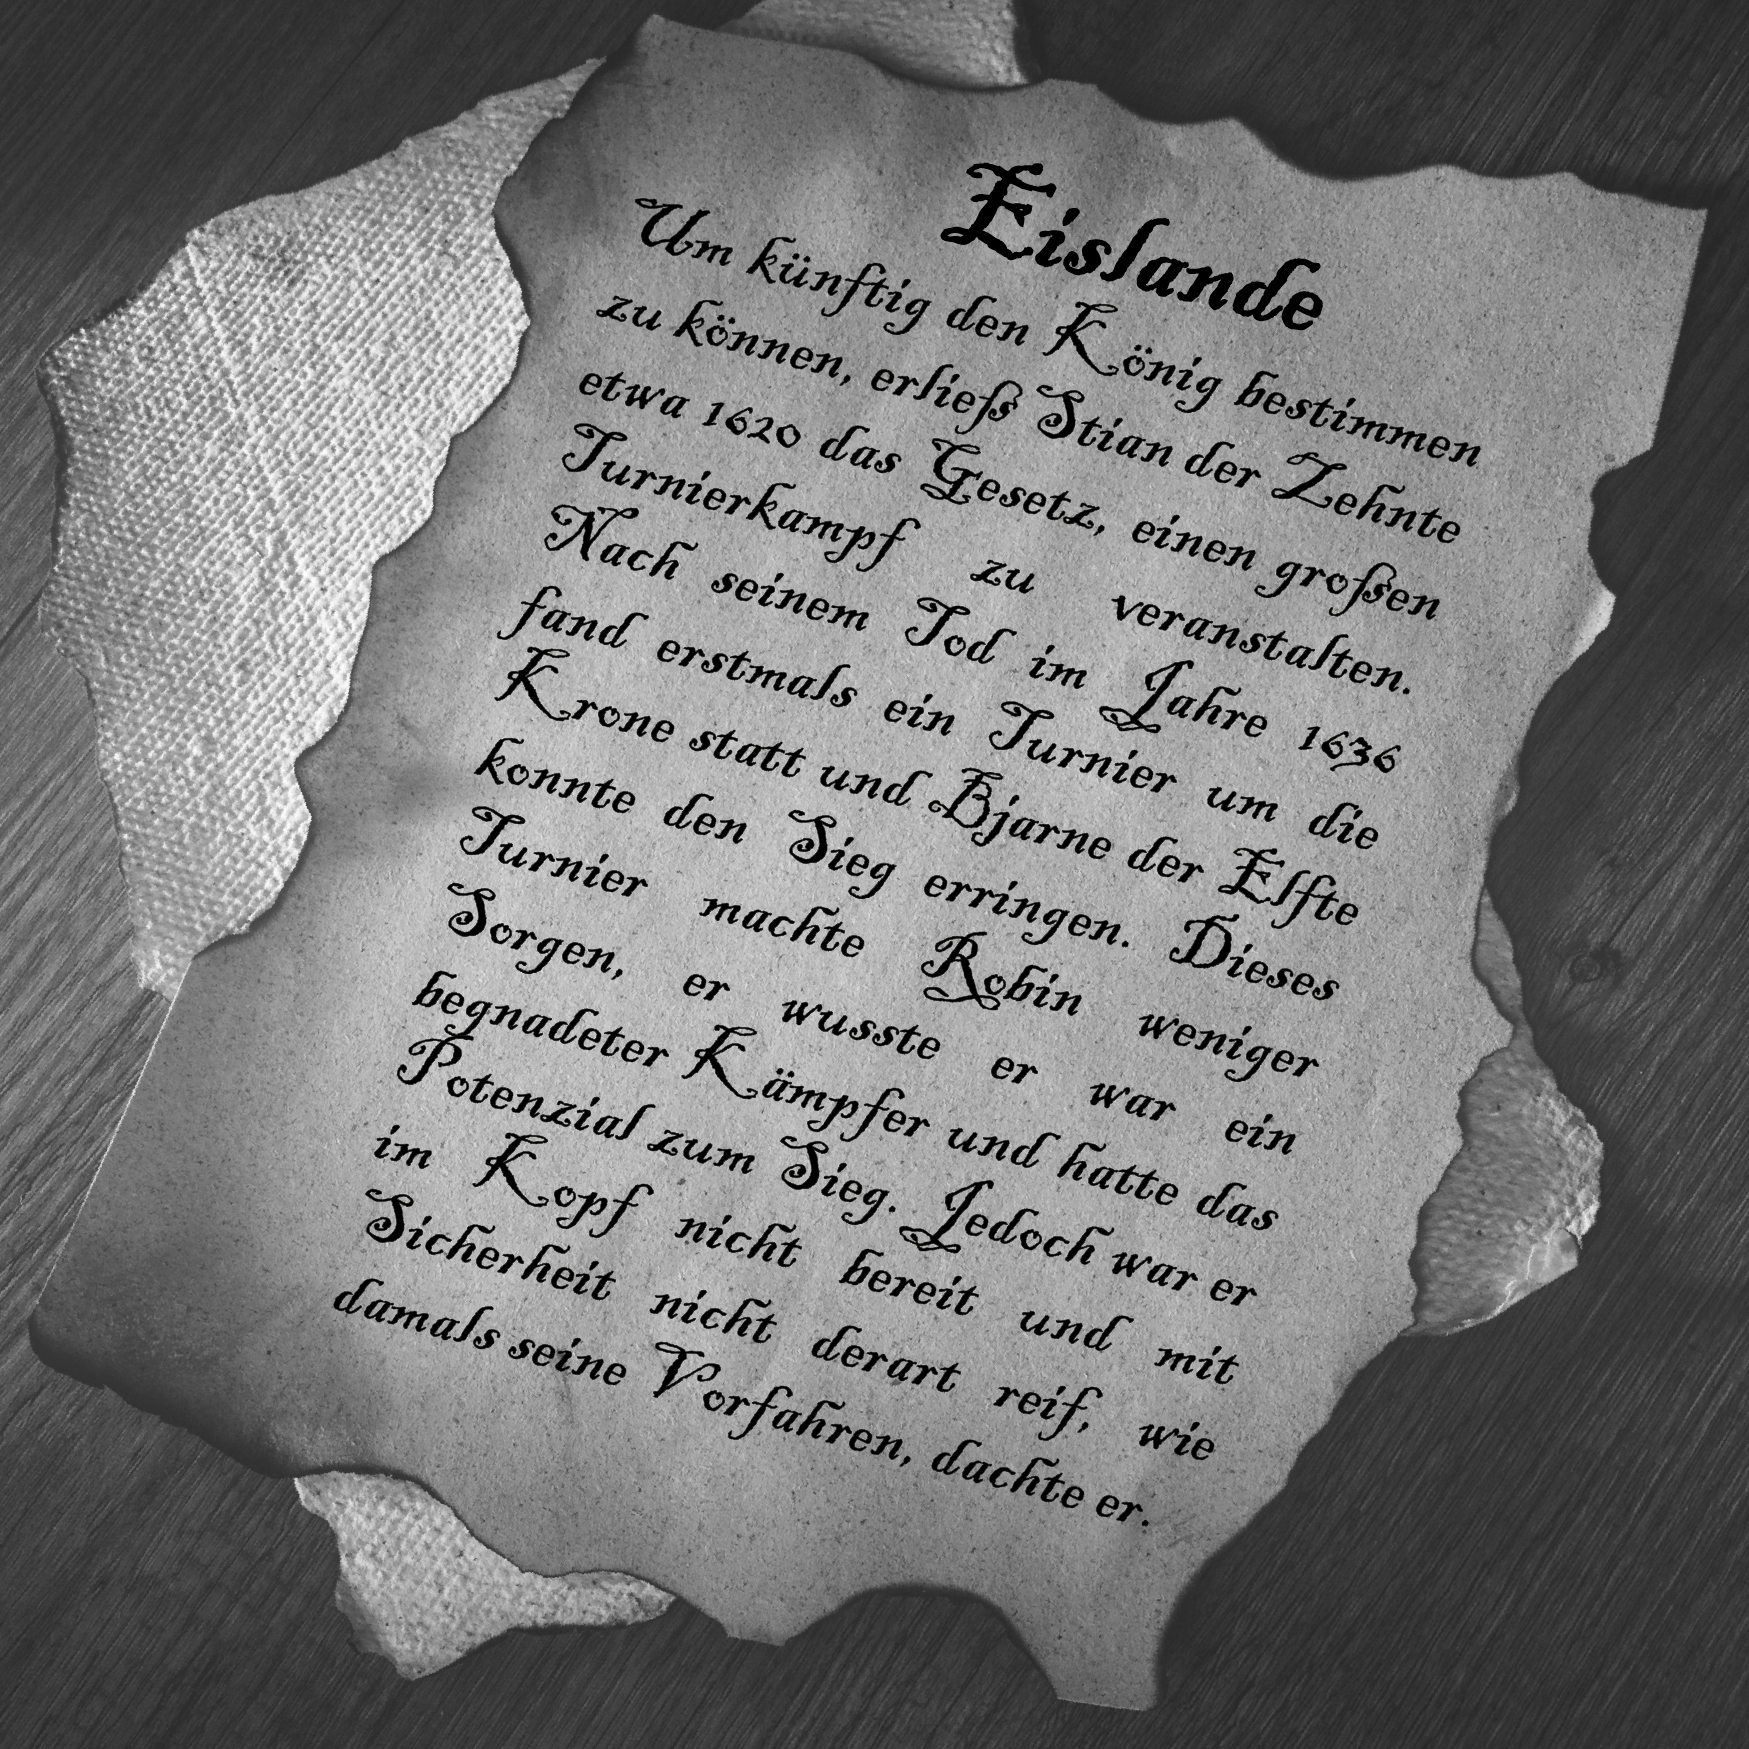 Eislande
Um künftig den König bestimmen
zu können, erließ Stian der Zehnte
etwa 1620 das Gesetz, einen großen
Turnierkampf zu veranstalten.
Nach seinem Tod im Jahre 1636
fand erstmals ein Turnier um die
Krone statt und Bjarne der Elfte
konnte den Sieg erringen. Dieses
Turnier machte Robin weniger
Sorgen, er wusste er war ein
begnadeter Kämpfer und hatte das
Potenzial zum Sieg. Jedoch war er
im Kopf nicht bereit und mit
Sicherheit nicht derart reif, wie
damals seine Vorfahren, dachte er.